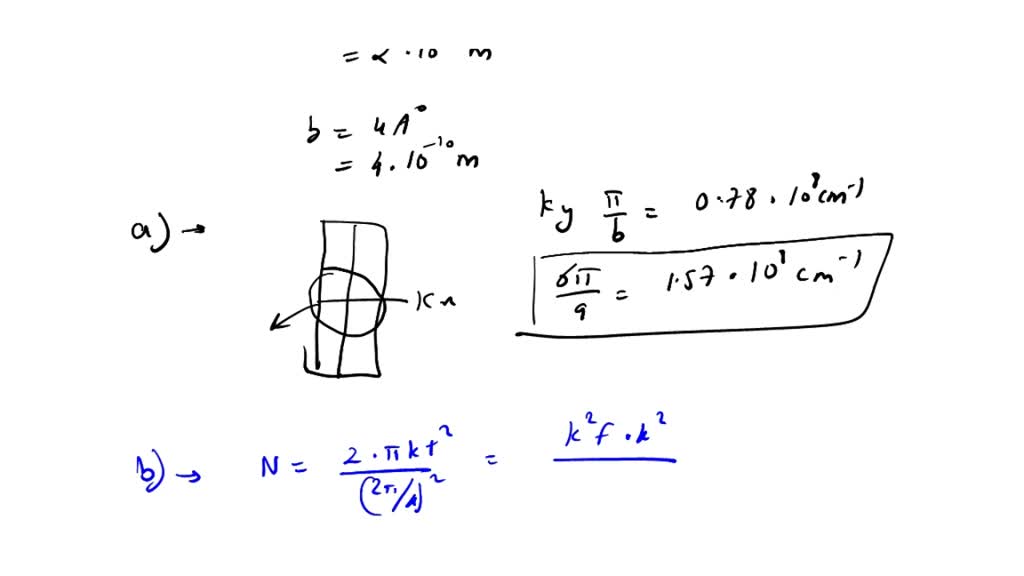 = α · 10 m
b = 4 A°
= 4 . 10⁻¹⁰ m
a) →
ky π/b = 0.78 · 10⁸ cm⁻¹
π/a = 1.57 · 10⁸ cm⁻¹
b) → N = 2 · πkf² / (2π/)² = k²f · k²